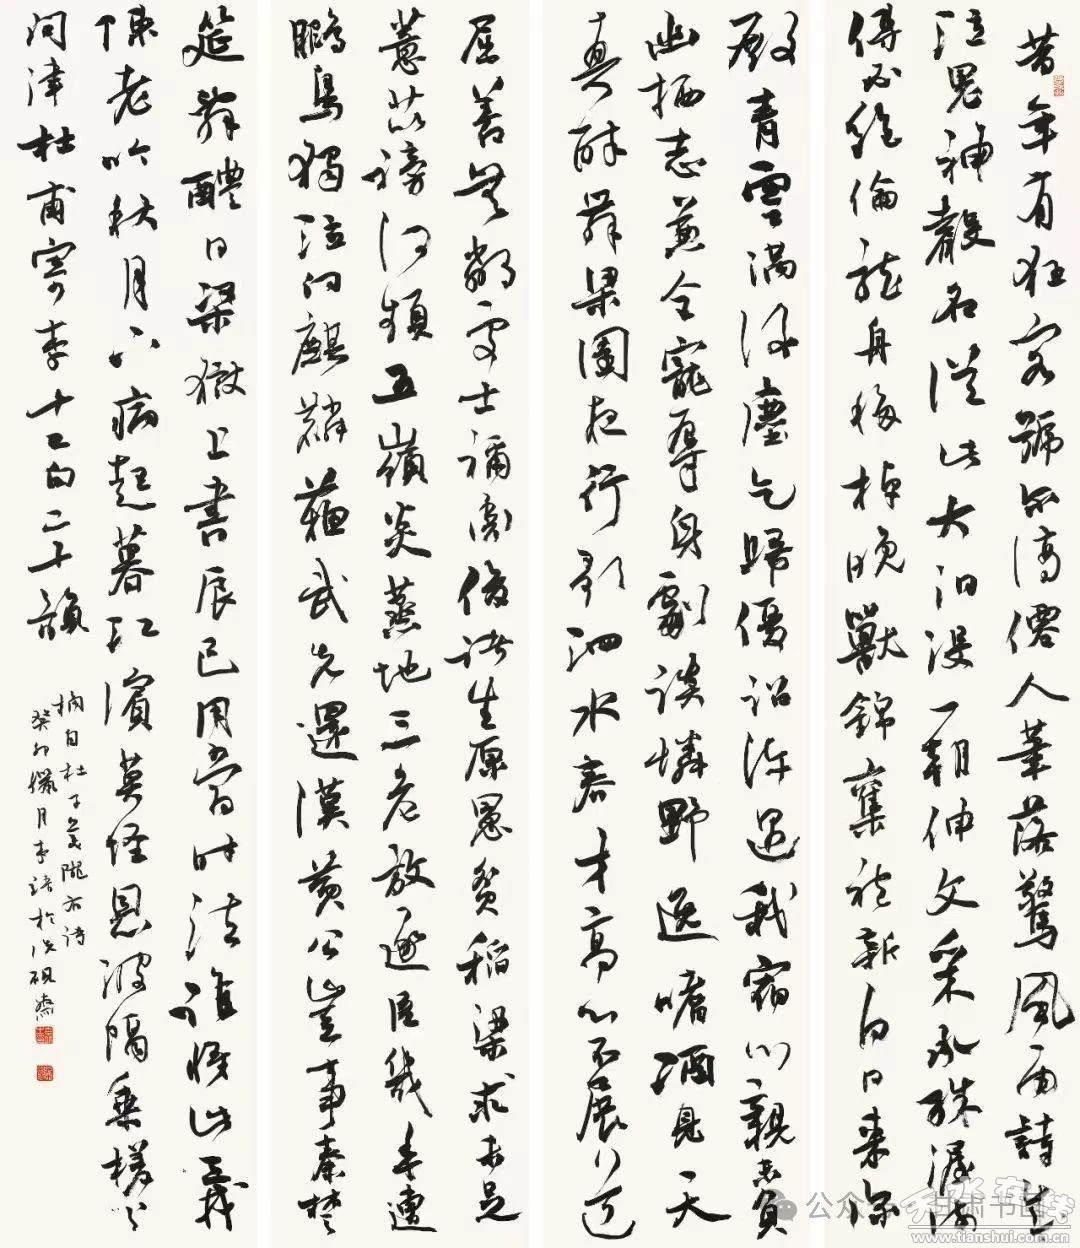 昔年有狂客號尔謫僊人筆落驚風雨詩成
泣鬼神聲名從此大汩没一朝伸文采承殊渥流
傳必絶倫龍舟移棹晚獸錦奪袍新白日來深
殿青雲滿後塵乞歸優詔許遇我宿心親未負
幽栖志兼全寵辱身劇談憐野逸嗜酒見天
真醉舞梁園夜行歌泗水春才高心不展道
屈善無鄰處士禰衡俊諸生原憲貧稻粱求未足
薏苡謗何頻五嶺炎蒸地三危放逐臣幾年遭
鵩鳥獨泣向麒麟蘇武先還漢黄公豈事秦楚
筵辭醴日梁獄上書辰已用當時法誰將此義
陳老吟秋月下病起暮江濱莫怪恩波隔乘槎與
問津杜甫寄李十二白二十韻
摘自杜子美隴右詩
癸卯臘月於硯齋
公众号 · 甘肃书画
天水在线
www.tianshui.com.cn